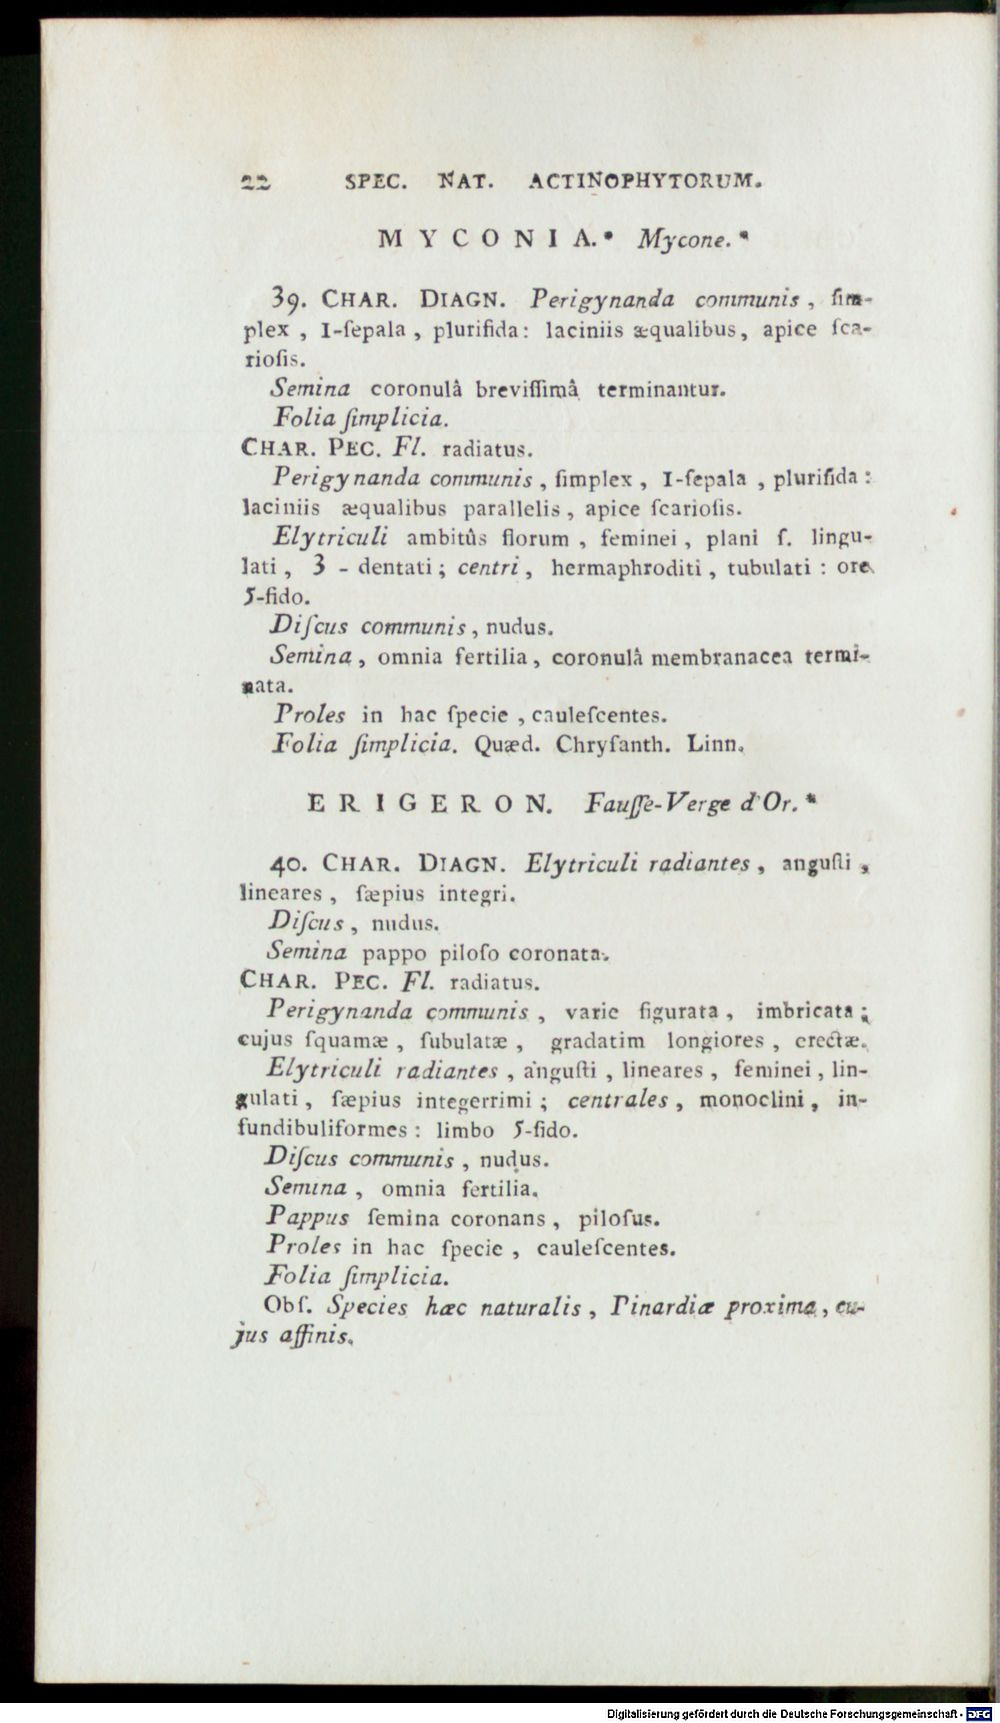 22 SPEC. NAT. ACTINOPHYTORUM.
MYCONIA.* Mycone.*
39. CHAR. DIAGN. Perigynanda communis, ſim-
plex, 1-ſepala, plurifida: laciniis æqualibus, apice ſca-
rioſis.
Semina coronulâ breviſſimâ terminantur.
Folia ſimplicia.
CHAR. PEC. Fl. radiatus.
Perigynanda communis, ſimplex, 1-ſepala, plurifida:
laciniis æqualibus parallelis, apice ſcarioſis.
Elytriculi ambitûs florum, feminei, plani ſ. lingu-
lati, 3-dentati; centri, hermaphroditi, tubulati: ore
5-fido.
Diſcus communis, nudus.
Semina, omnia fertilia, coronulâ membranacea termi-
nata.
Proles in hac ſpecie, cauleſcentes.
Folia ſimplicia. Quæd. Chryſanth. Linn.
ERIGERON. Fauſſe-Verge d'Or.*
40. CHAR. DIAGN. Elytriculi radiantes, anguſti,
lineares, ſæpius integri.
Diſcus, nudus.
Semina pappo piloſo coronata.
CHAR. PEC. Fl. radiatus.
Perigynanda communis, varie figurata, imbricata;
cujus ſquamæ, ſubulatæ, gradatim longiores, erectæ.
Elytriculi radiantes, anguſti, lineares, feminei, lin-
gulati, ſæpius integerrimi; centrales, monoclini, in-
fundibuliformes: limbo 5-fido.
Diſcus communis, nudus.
Semina, omnia fertilia.
Pappus ſemina coronans, piloſus.
Proles in hac ſpecie, cauleſcentes.
Folia ſimplicia.
Obſ. Species hæc naturalis, Pinardiæ proxima, cu-
jus affinis.
Digitalisierung gefördert durch die Deutsche Forschungsgemeinschaft - DFG